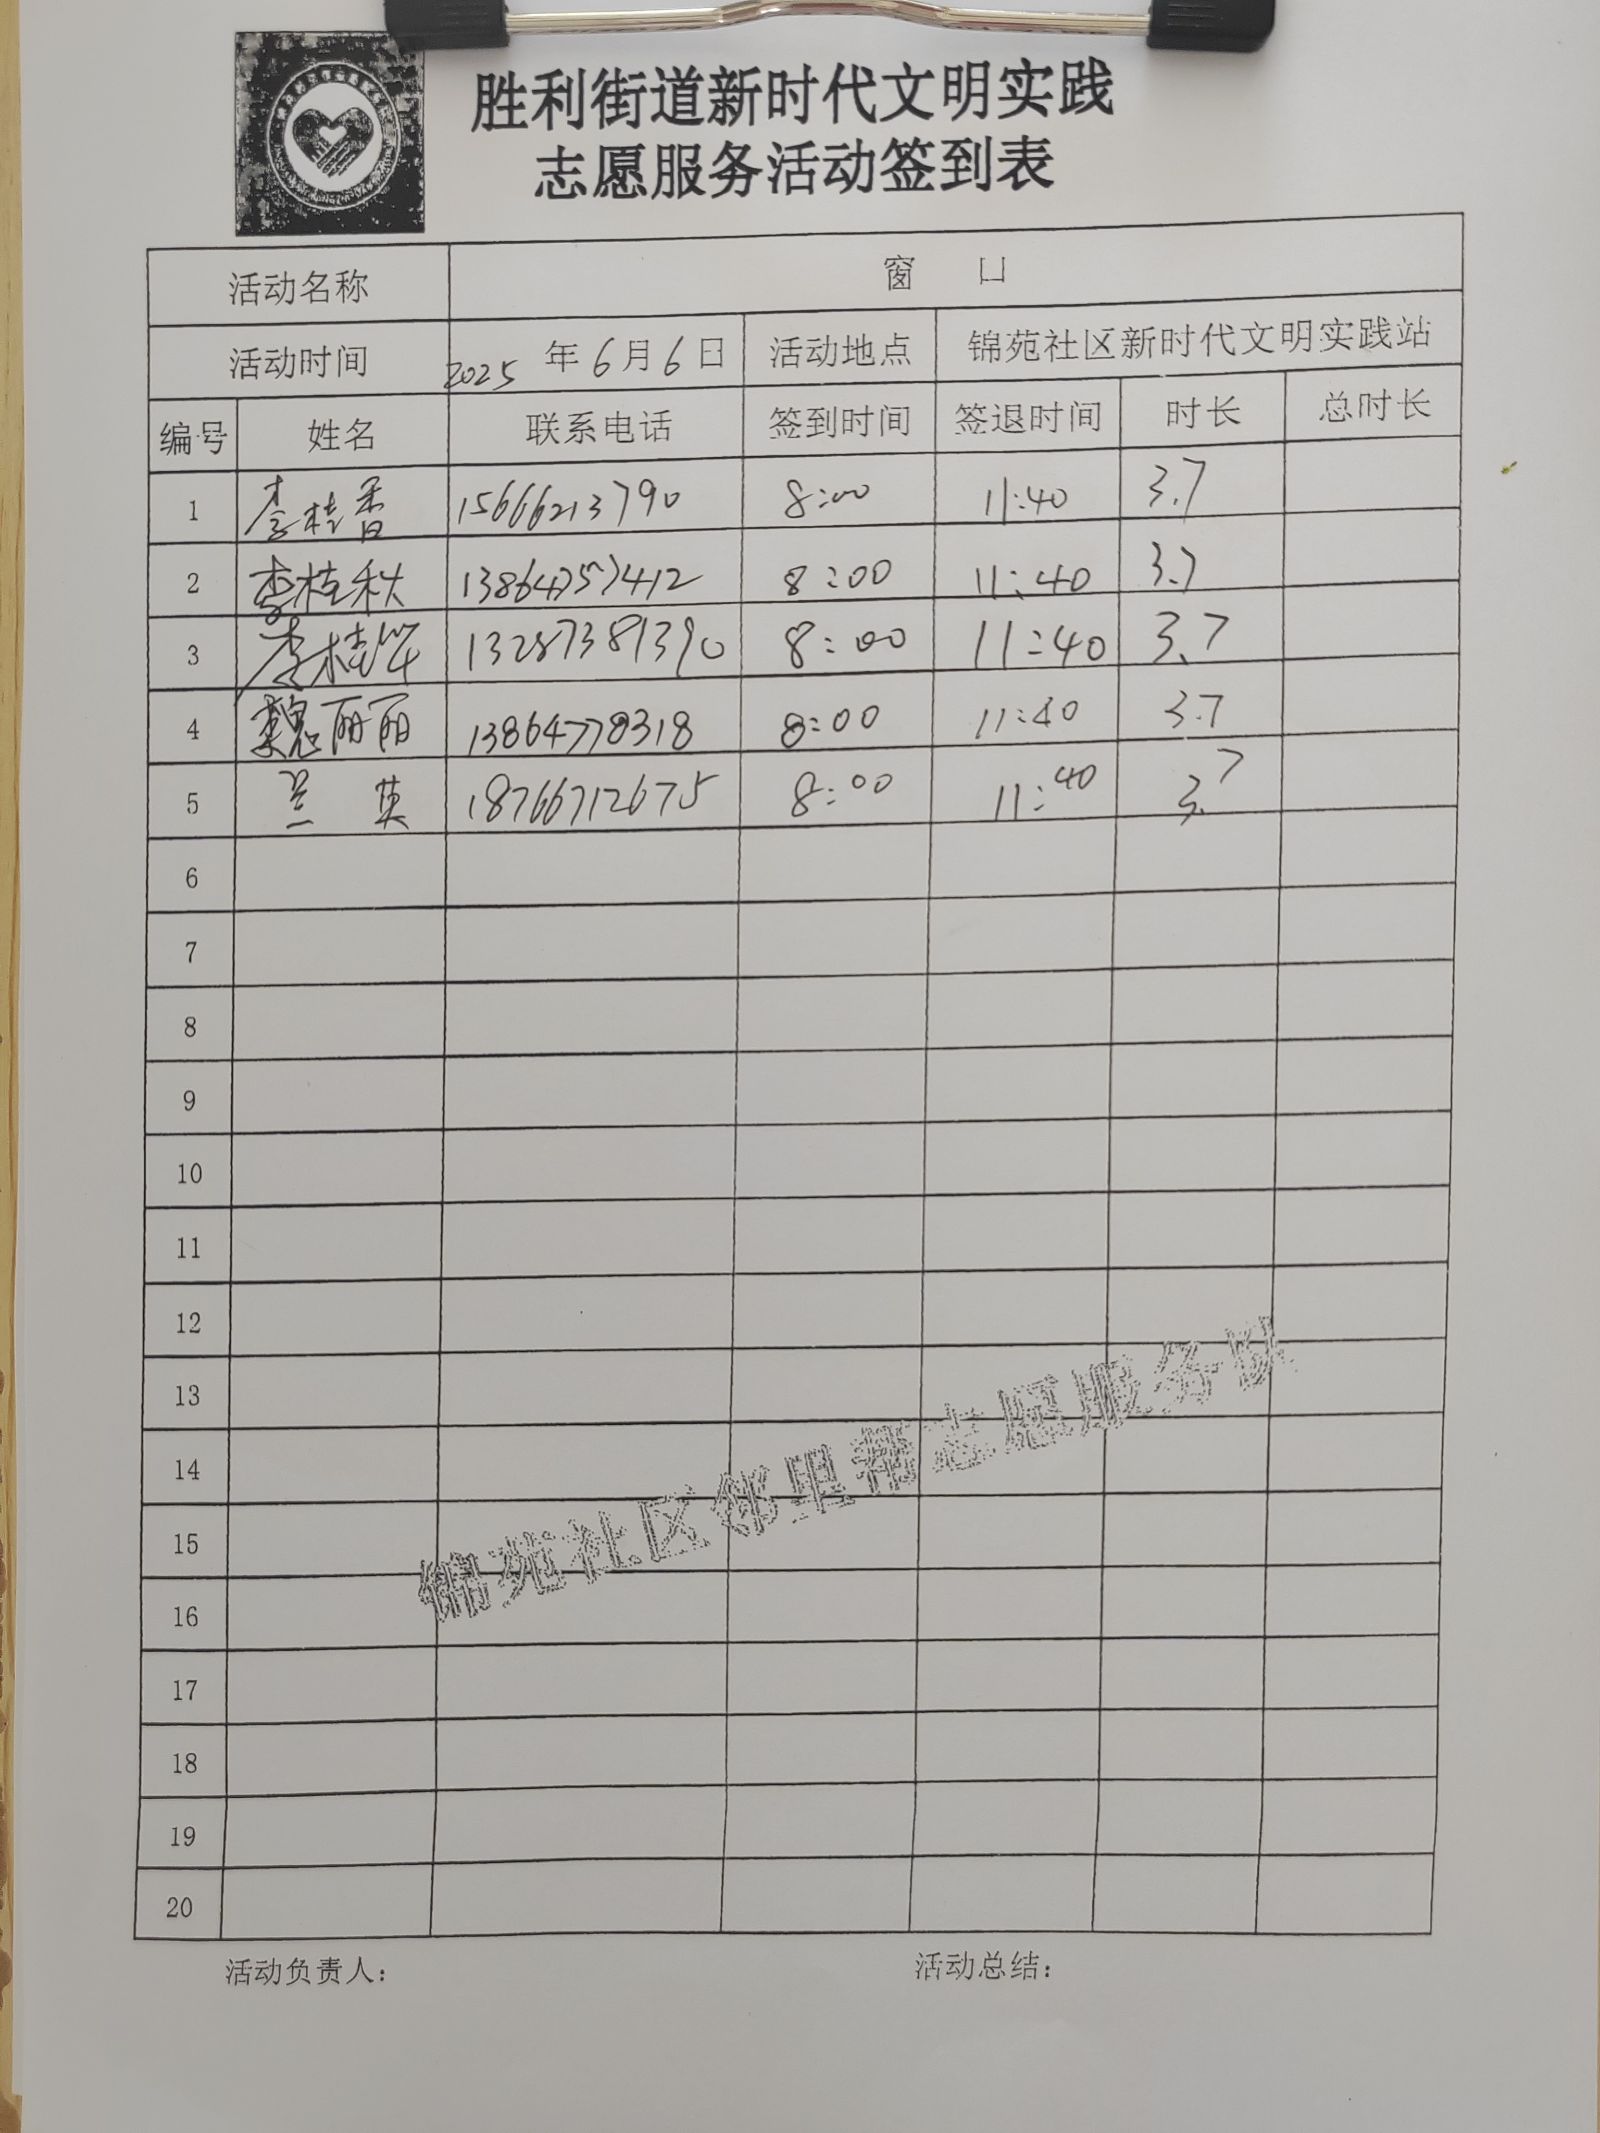 胜利街道新时代文明实践
志愿服务活动签到表
活动名称 窗 口
活动时间 2025 年 6 月 6 日 活动地点 锦苑社区新时代文明实践站
编号 姓名 联系电话 签到时间 签退时间 时长 总时长
1 李桂香 15666213790 8:00 11:40 3.7
2 李桂秋 13864757412 8:00 11:40 3.7
3 李桂华 13287381390 8:00 11:40 3.7
4 魏丽丽 13864778318 8:00 11:40 3.7
5 兰英 18766712675 8:00 11:40 3.7
6
7
8
9
10
11
12
13
14
15
16
17
18
19
20
锦苑社区邻里帮志愿服务队
活动负责人： 活动总结：